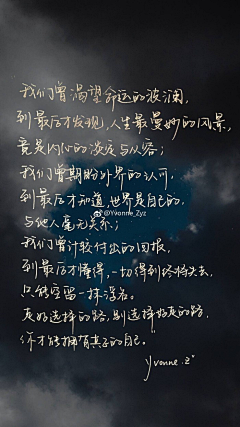 我们曾渴望命运的波澜,
到最后才发现,人生最曼妙的风景,
竟是内心的淡定与从容;
我们曾期盼外界的认可,
到最后才知道,世界是自己的,
@Yvonne_Zyz
与他人毫无关系;
我们曾计较付出的回报,
到最后才懂得,一切得到终将失去,
只能空留一抹浮名。
走好选择的路,别选择好走的路,
你才能拥有真正的自己。"
yvonne.z"